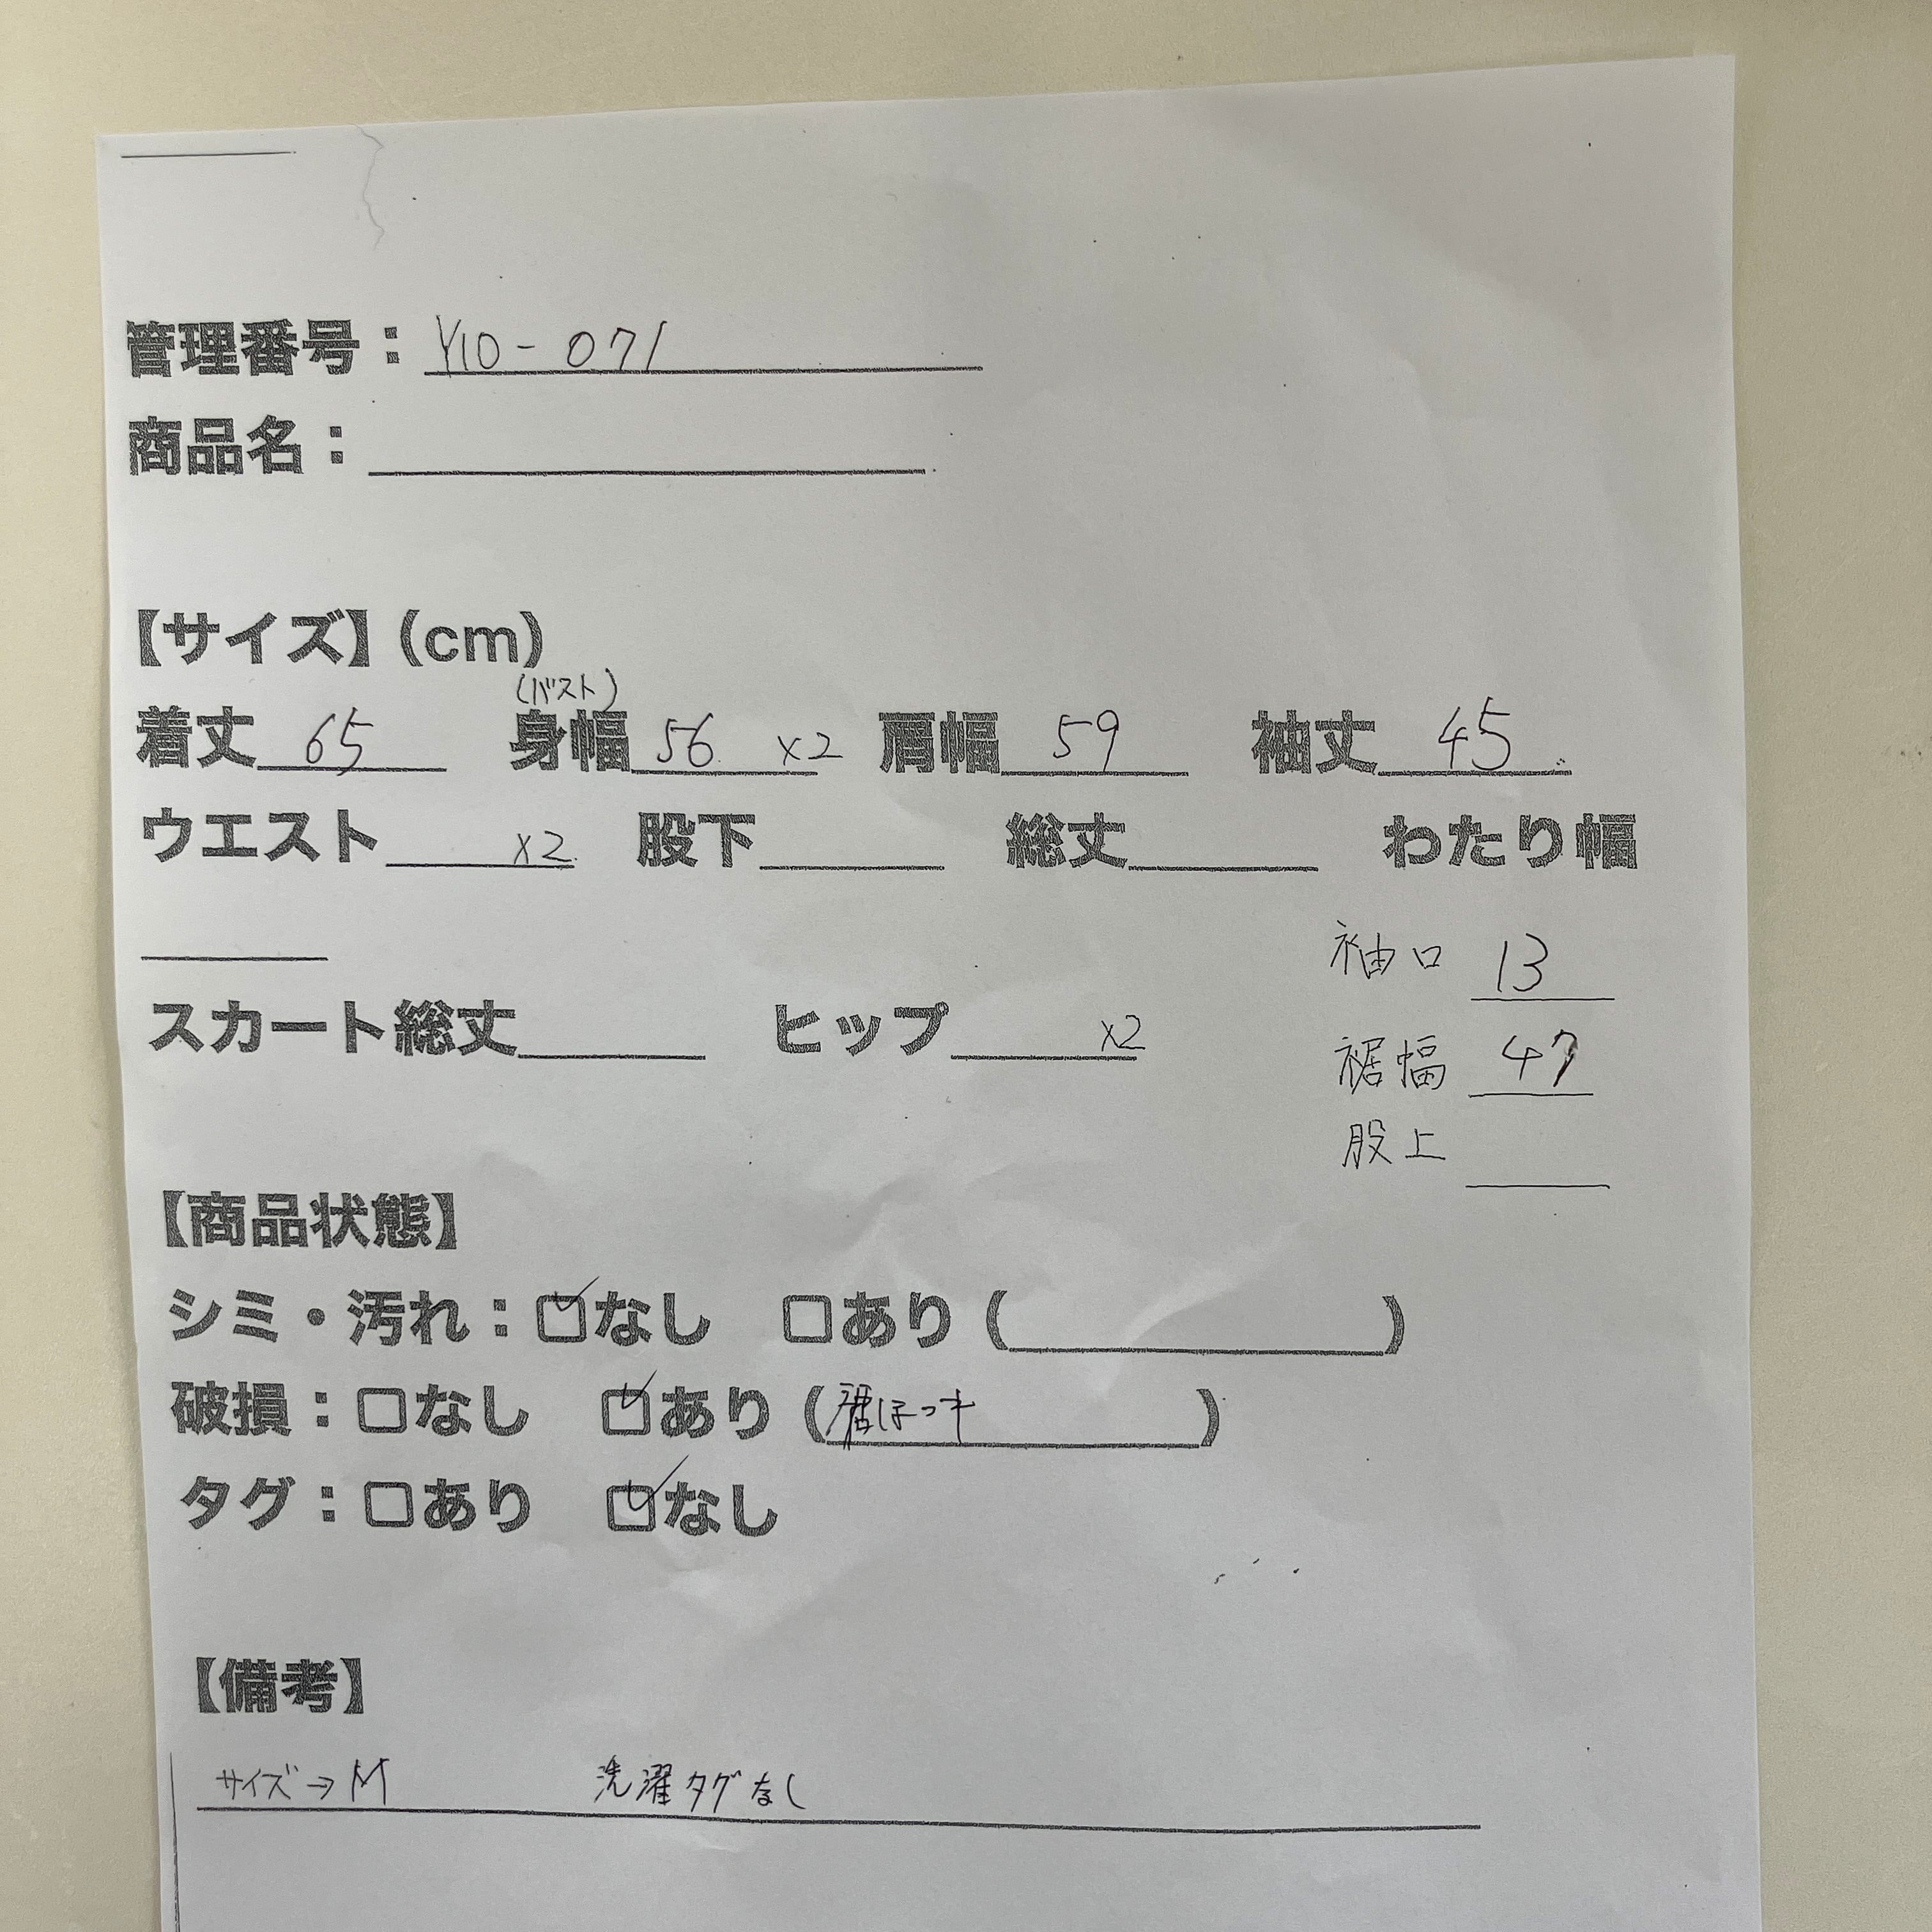 管理番号：Y10-071
商品名：
【サイズ】(cm)
(バスト)
着丈 65 身幅 56 ×2 肩幅 59 袖丈 45
ウエスト ×2 股下 総丈 わたり幅
袖口 13
スカート総丈 ヒップ ×2
裾幅 47
股上
【商品状態】
シミ・汚れ：☑なし □あり ( )
破損：□なし ☑あり (裾ほつれ)
タグ：□あり ☑なし
【備考】
サイズ→M 洗濯タグなし